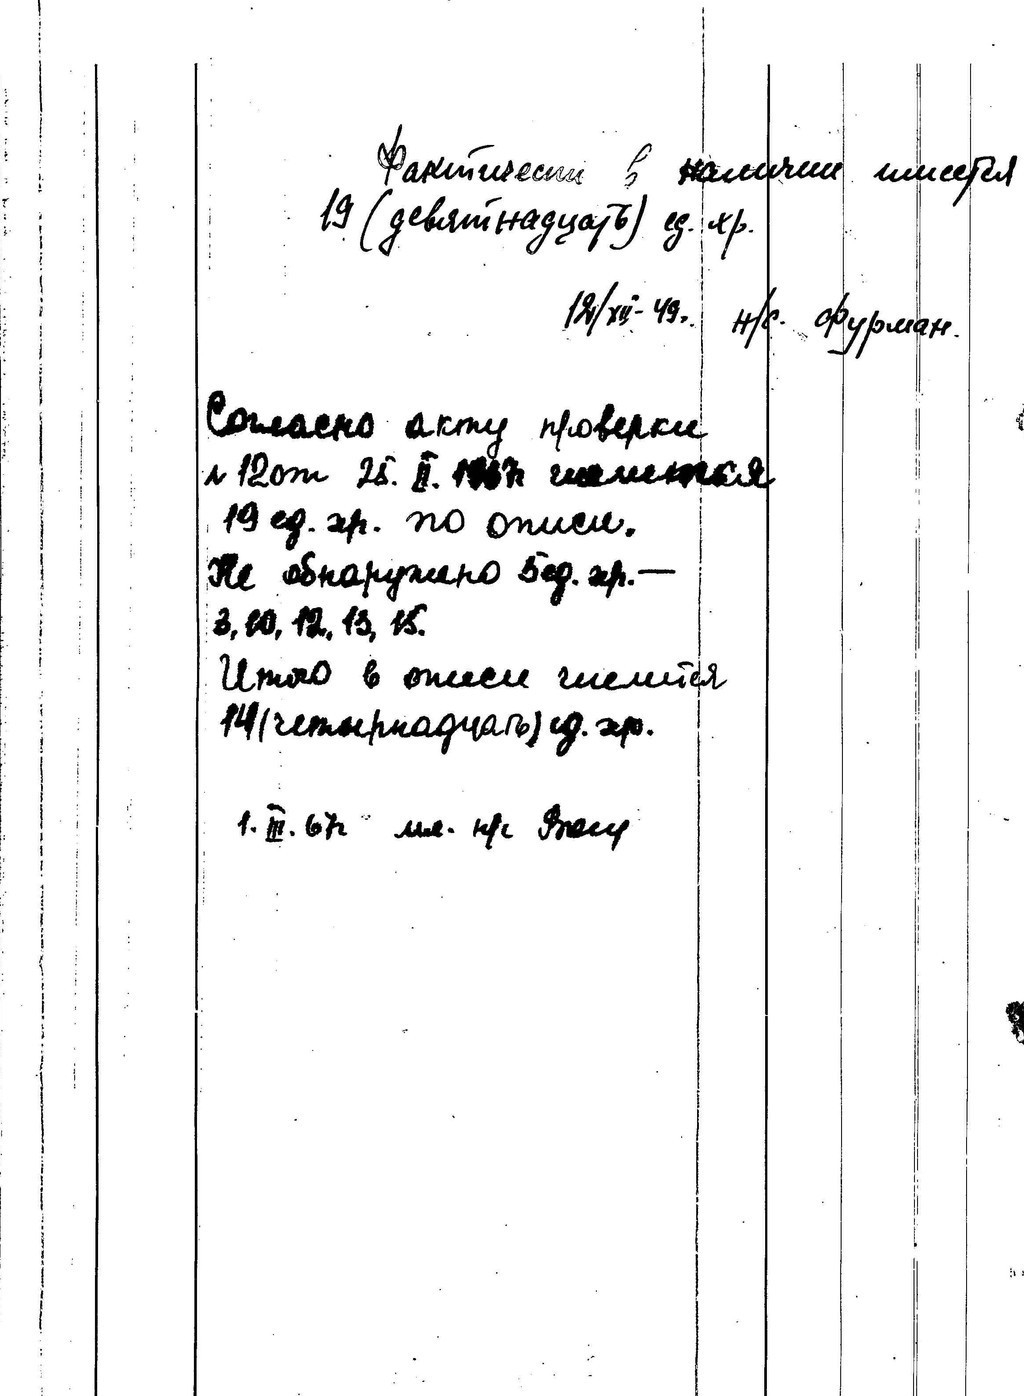 Фактически в наличии имеется
19 (девятнадцать) ед. хр.
12/XII-49г. н/с. Фурман.
Согласно акту проверки
№ 12 от 25. II. 1967г числится
19 ед. хр. по описи.
Не обнаружено 5 ед. хр. —
3, 10, 12, 13, 15.
Итого в описи числится
14 (четырнадцать) ед. хр.
1. III. 67г мл. н/с